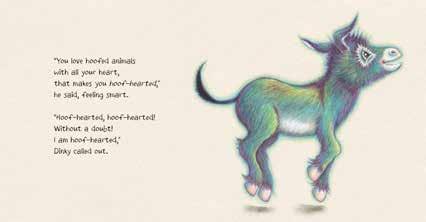 "You love hoofed animals
with all your heart,
that makes you hoof-hearted,"
he said, feeling smart.
"Hoof-hearted, hoof-hearted!
Without a doubt!
I am hoof-hearted,"
Dinky called out.